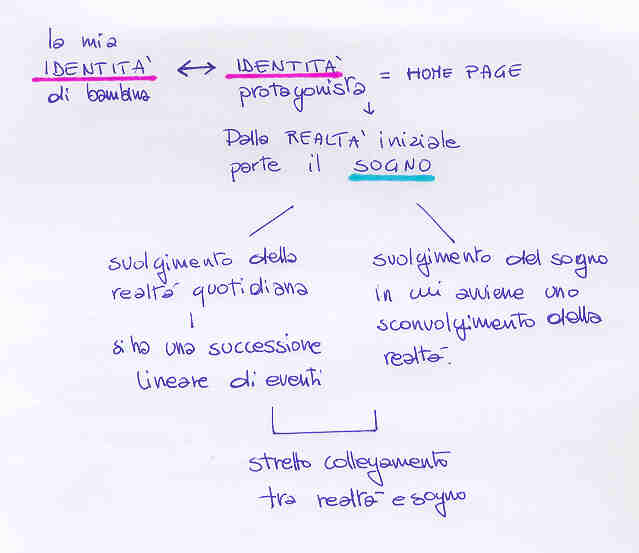 la mia
IDENTITA'
di bambina
↔ IDENTITA'
protagonista
= HOME PAGE
↓
Dalla REALTA' iniziale
parte il SOGNO
svolgimento della
realtà quotidiana
si ha una successione
lineare di eventi
svolgimento del sogno
in cui avviene uno
sconvolgimento della
realtà.
stretto collegamento
tra realtà e sogno